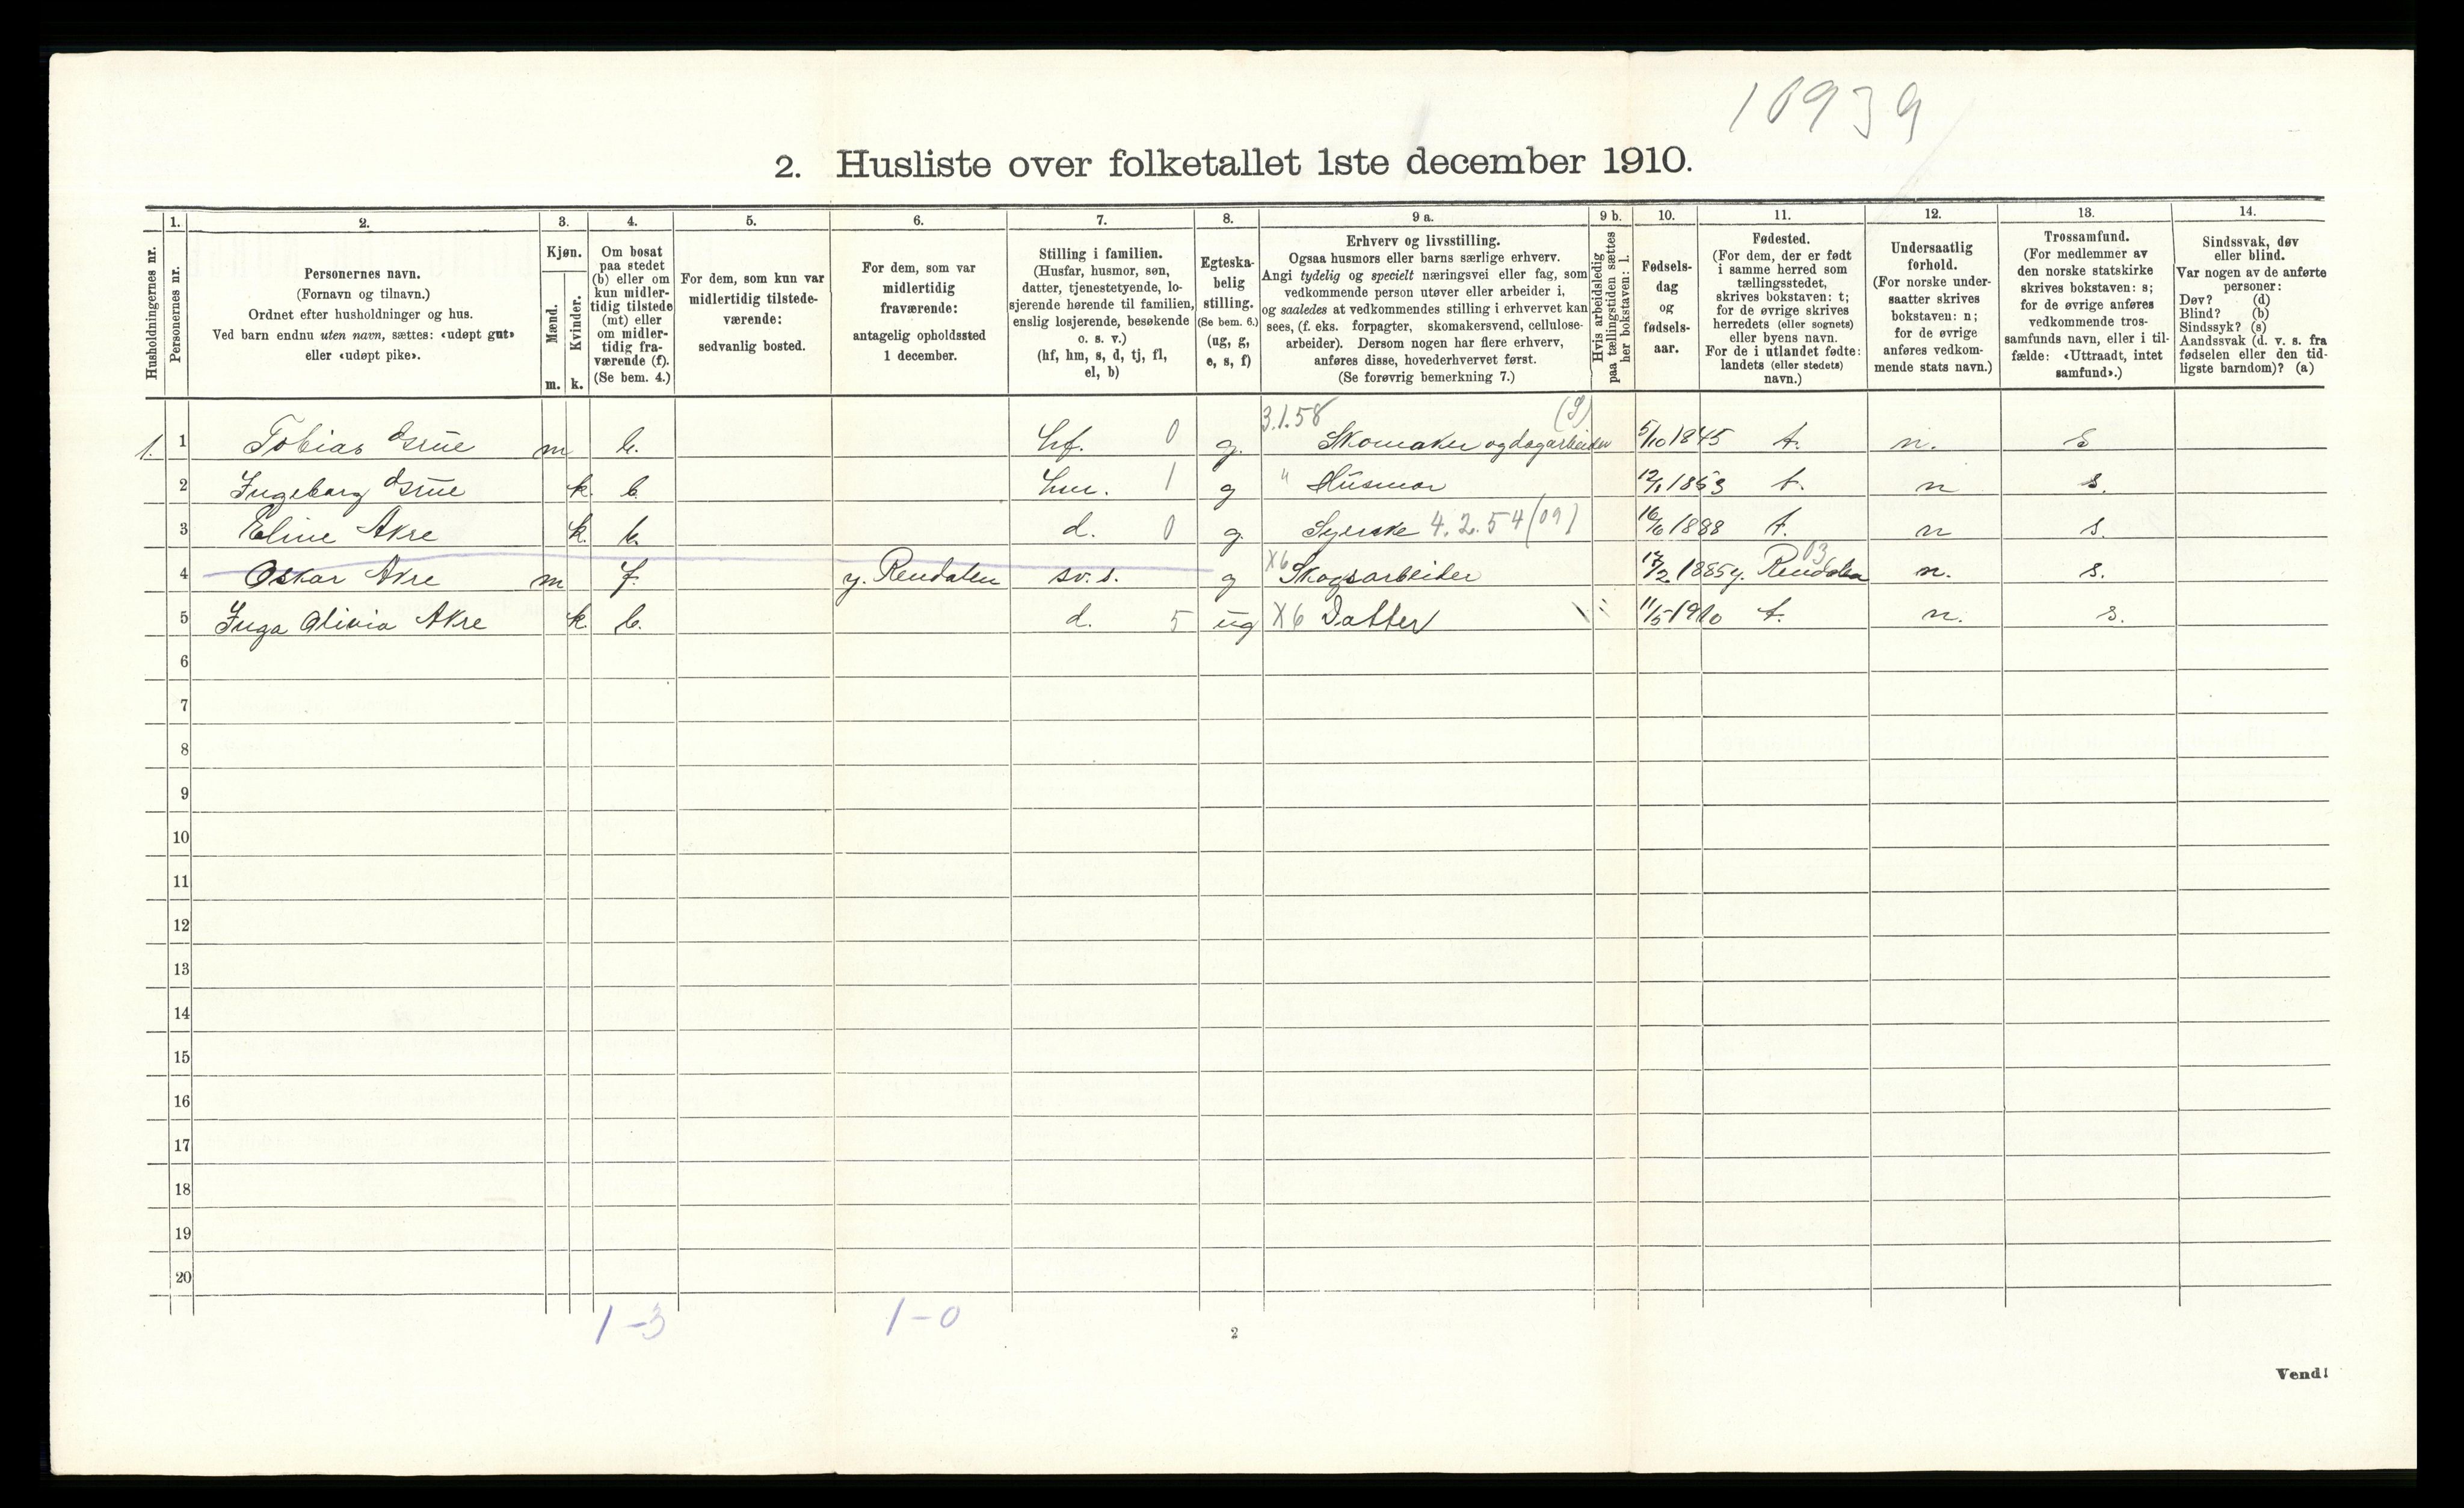 10939
2. Husliste over folketallet 1ste december 1910.
Husholdningernes nr.
1.
Personernes nr.
2.
Personernes navn.
(Fornavn og tilnavn.)
Ordnet efter husholdninger og hus.
Ved barn endnu uten navn, sættes: «udøpt gut»
eller «udøpt pike».
3.
Kjøn.
Mænd.
Kvinder.
m. k.
4.
Om bosat
paa stedet
(b) eller om
kun midler-
tidig tilstede
(mt) eller
om midler-
tidig fra-
værende (f).
(Se bem. 4.)
5.
For dem, som kun var
midlertidig tilstede-
værende:
sedvanlig bosted.
6.
For dem, som var
midlertidig
fraværende:
antagelig opholdssted
1 december.
7.
Stilling i familien.
(Husfar, husmor, søn,
datter, tjenestetyende, lo-
sjerende hørende til familien,
enslig losjerende, besøkende
o. s. v.)
(hf, hm, s, d, tj, fl,
el, b)
8.
Egteska-
belig
stilling.
(Se bem. 6.)
(ug, g,
e, s, f)
9 a.
Erhverv og livsstilling.
Ogsaa husmors eller barns særlige erhverv.
Angi tydelig og specielt næringsvei eller fag, som
vedkommende person utøver eller arbeider i,
og saaledes at vedkommendes stilling i erhvervet kan
sees, (f. eks. forpagter, skomakersvend, cellulose-
arbeider). Dersom nogen har flere erhverv,
anføres disse, hovederhvervet først.
(Se forøvrig bemerkning 7.)
9 b.
Hvis arbeidsledig
paa tællingstiden sættes
her bokstaven: l.
10.
Fødsels-
dag
og
fødsels-
aar.
11.
Fødested.
(For dem, der er født
i samme herred som
tællingsstedet,
skrives bokstaven: t;
for de øvrige skrives
herredets (eller sognets)
eller byens navn.
For de i utlandet fødte:
landets (eller stedets)
navn.)
12.
Undersaatlig
forhold.
(For norske under-
saatter skrives
bokstaven: n;
for de øvrige
anføres vedkom-
mende stats navn.)
13.
Trossamfund.
(For medlemmer av
den norske statskirke
skrives bokstaven: s;
for de øvrige anføres
vedkommende tros-
samfunds navn, eller i til-
fælde: «Uttraadt, intet
samfund».)
14.
Sindssvak, døv
eller blind.
Var nogen av de anførte
personer:
Døv? (d)
Blind? (b)
Sindssyk? (s)
Aandssvak (d. v. s. fra
fødselen eller den tid-
ligste barndom)? (a)
3.1.58 (S)
1. 1 Tobias Grue m b. hf. 0 g. Skomaker og dagarbeider 5/10 1845 t. n. s
2 Ingeborg Grue k. b. hm. 1 g " Husmor 1863 t. n s.
3 Eline Akre k. b. d. 0 g. Syerske 4.2.54 (09) 16/6 1888 t. n s.
4 Oskar Akre m f. y. Rendalen sv. s. g X6 Skogsarbeider 1885 y. Rendalen 03 n. s.
5 Inga Olivia Akre k. b. d. 5 ug X6 Datter 11/5 1910 t. n. s.
6
7
8
9
10
11
12
13
14
15
16
17
18
19
20
1-3 1-0
2
Vend!